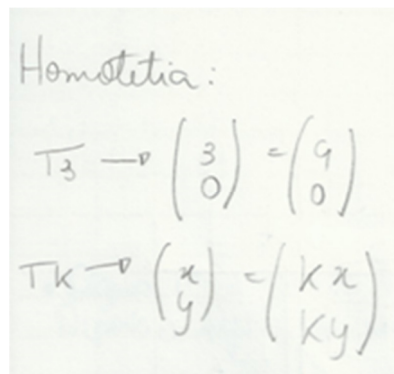 Homotetia:
T3 → (3 0) = (9 0)
TK → (x y) = (Kx Ky)